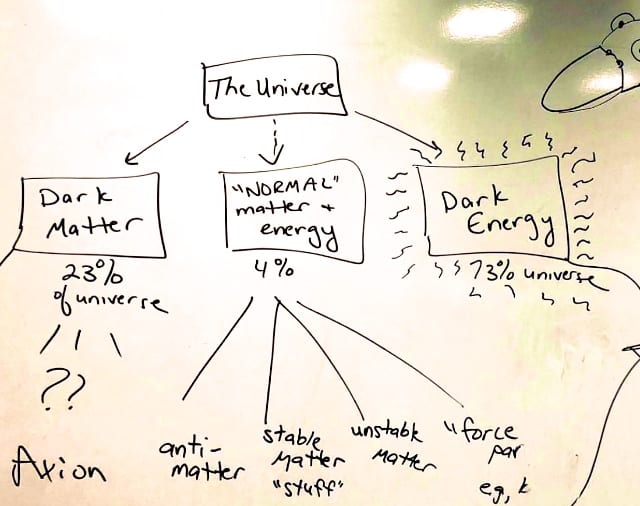 The Universe
Dark
Matter
23%
of universe
??
Axion
"NORMAL"
matter +
energy
4%
anti-
matter
stable
Matter
"stuff"
unstable
Matter
"force
par
eg, k
Dark
Energy
73% universe